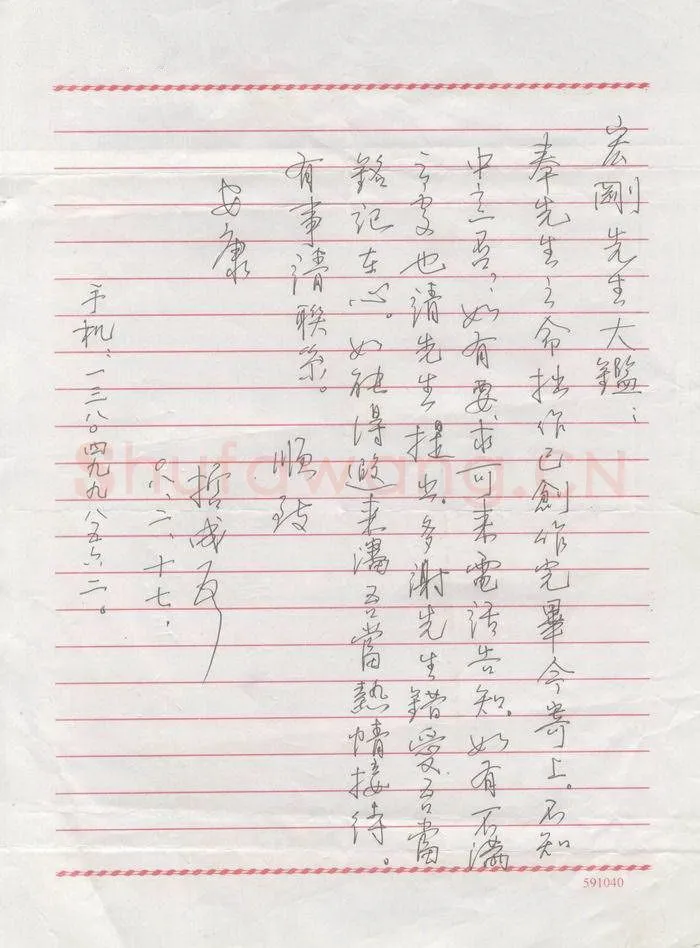 宏刚先生大鑑：
奉先生之命拙作已創作完畢今寄上。不知
中意否，如有要求可来電話告知。如有不滿
之處也請先生提出。多謝先生錯愛吾當
銘記在心。如能得遐来瀋吾當熱情接待。
有事請聯系。
順致
安康
哲成
〇八.二.十七.
手机：一三八〇四九九八五六二。
Shufawang.CN
591040